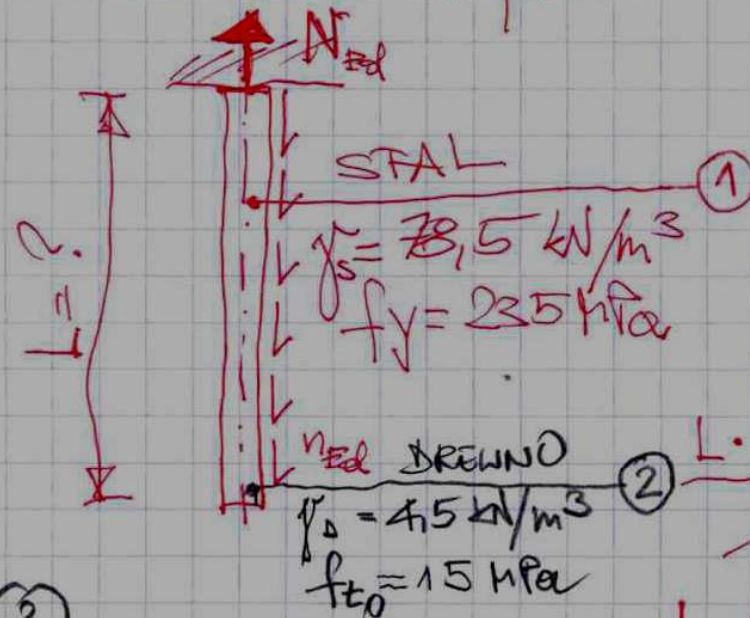 N_Ed
STAL
①
γ_s = 78,5 kN/m³
f_y = 235 MPa
L = ?
n_Ed DREWNO
②
L.
γ_D = 4,5 kN/m³
f_t0 = 15 MPa